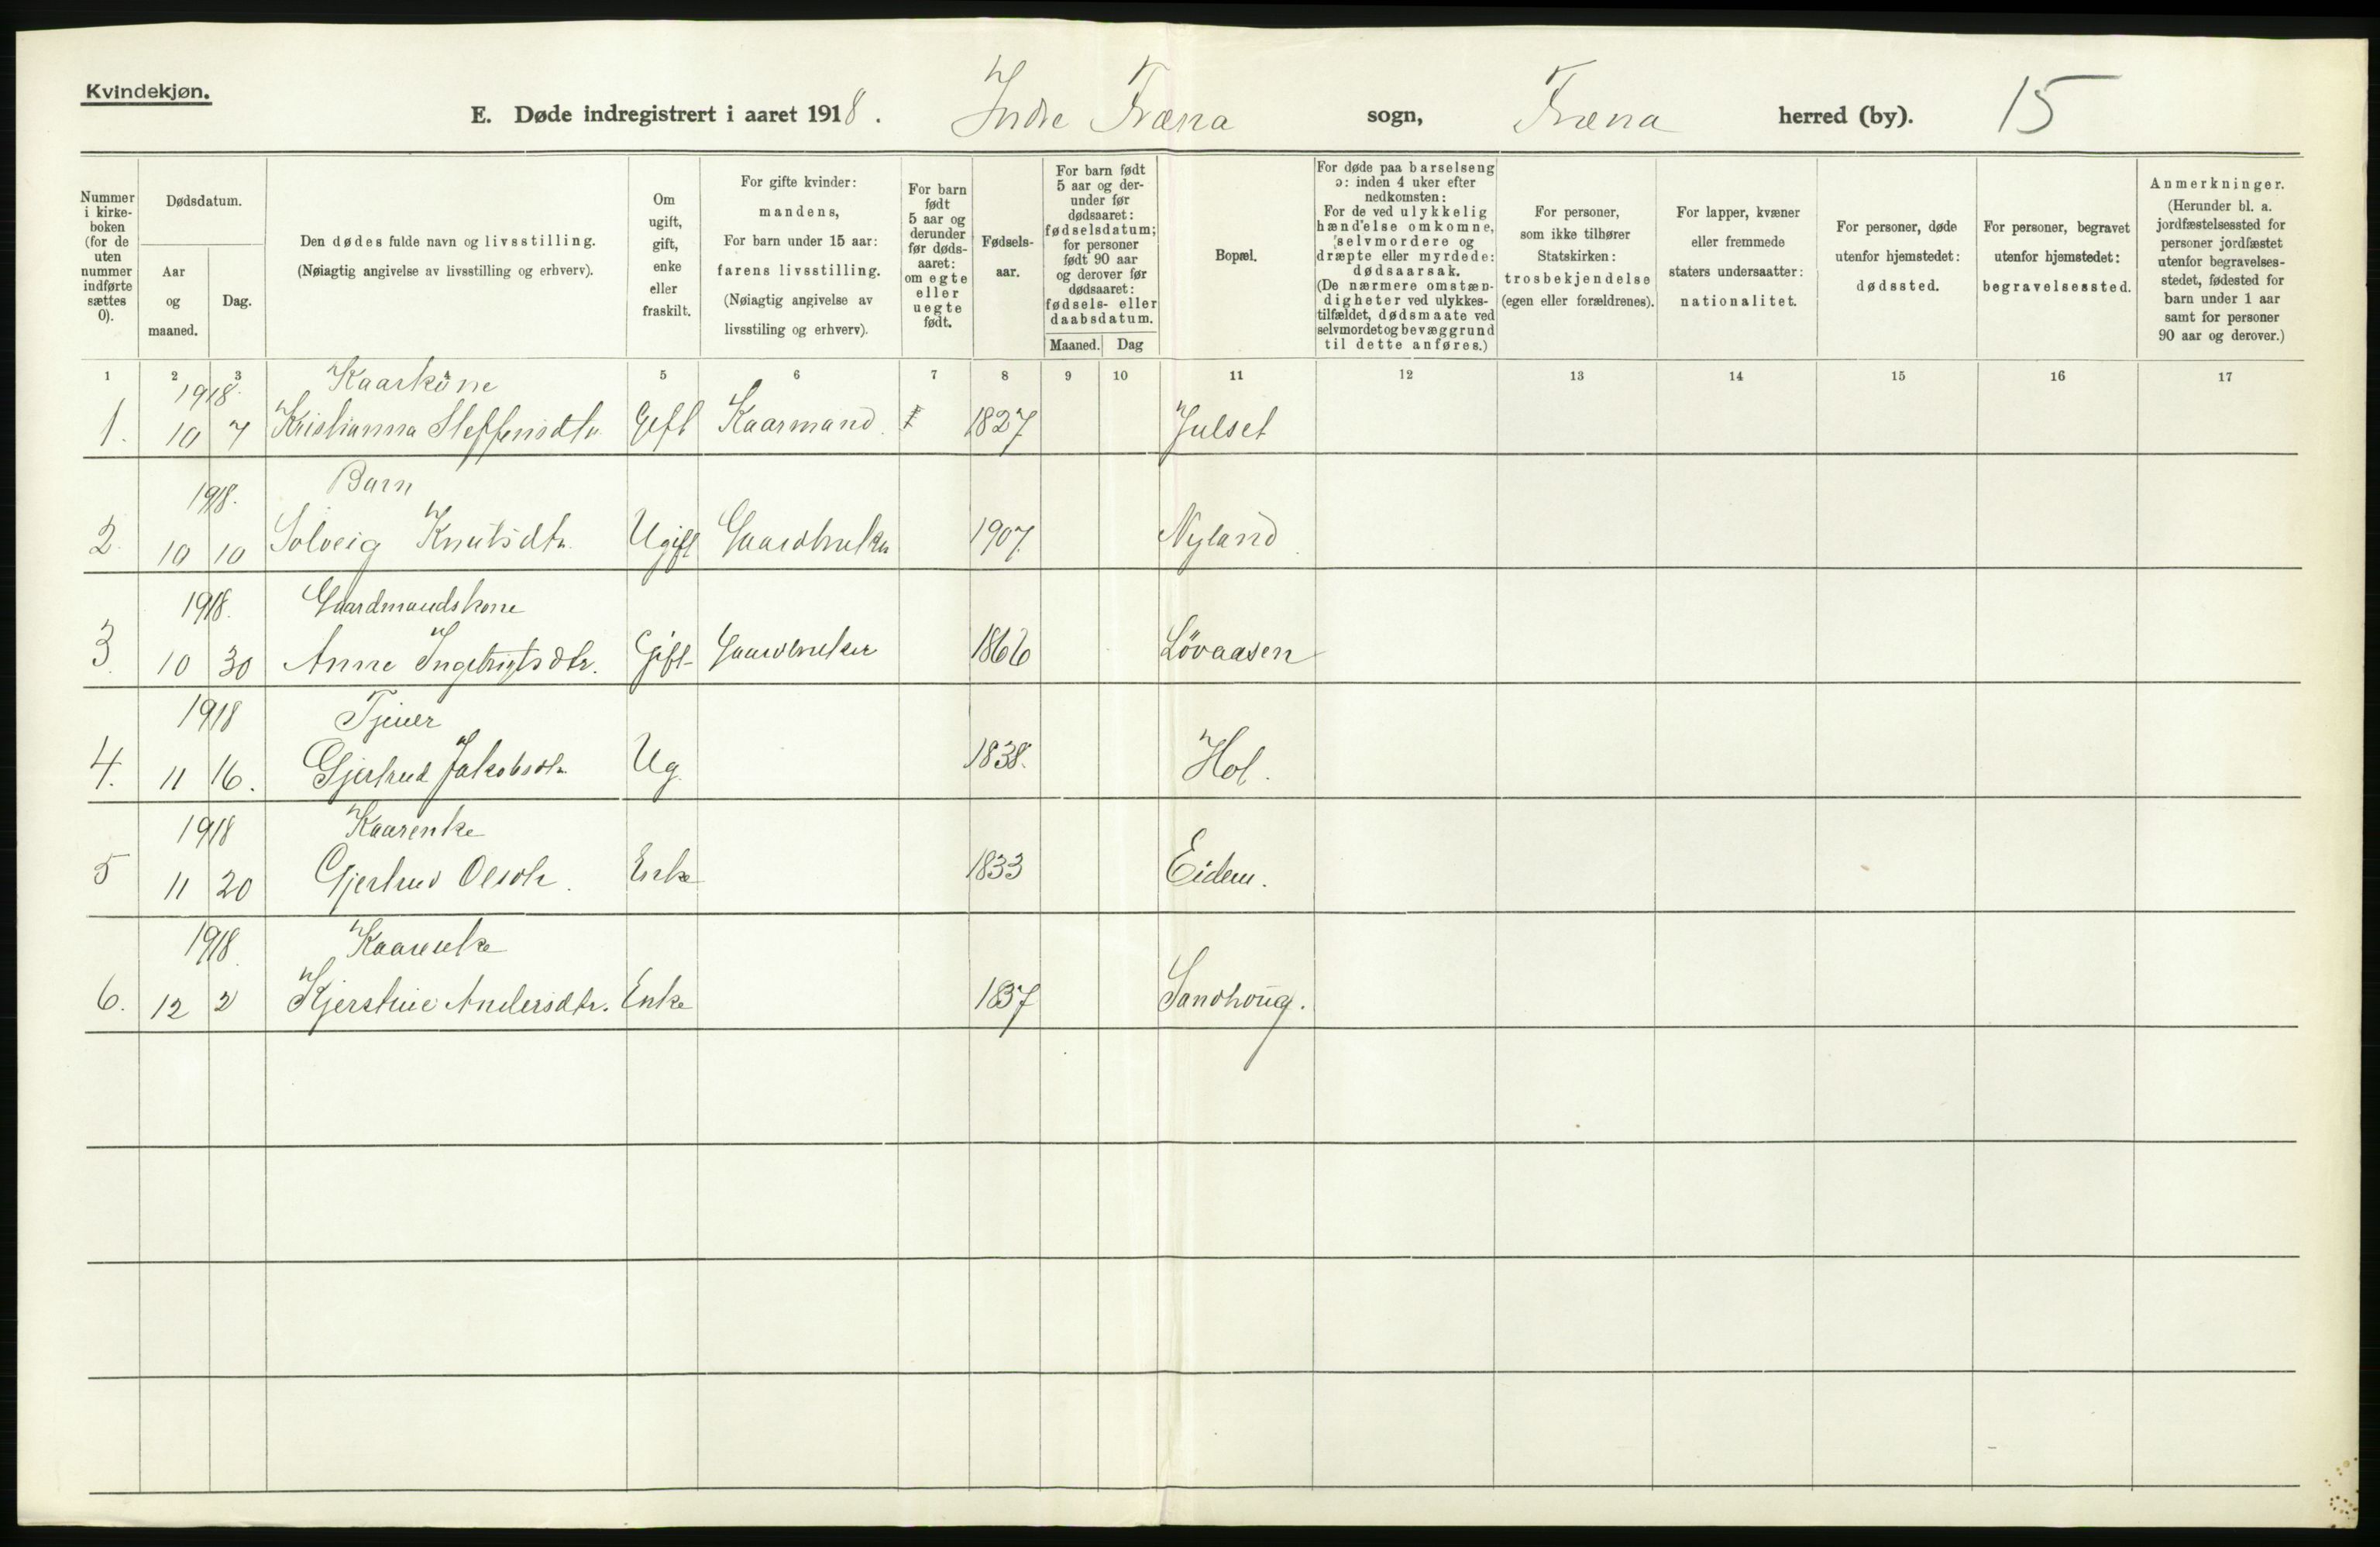 Kvindekjøn.
E. Døde indregistrert i aaret 1918. Indre Fræna sogn, Fræna herred (by). 15
Nummer i kirkeboken (for de uten nummer indførte sættes 0).
Dødsdatum.
Aar og maaned.
Dag.
Den dødes fulde navn og livsstilling.
(Nøiagtig angivelse av livsstilling og erhverv).
Om ugift, gift, enke eller fraskilt.
For gifte kvinder: mandens,
For barn under 15 aar: farens livsstilling.
(Nøiagtig angivelse av livsstiling og erhverv).
For barn født 5 aar og derunder før dødsaaret: om egte eller uegte født.
Fødselsaar.
For barn født 5 aar og derunder før dødsaaret: fødselsdatum; for personer født 90 aar og derover før dødsaaret: fødsels- eller daabsdatum.
Maaned. Dag
Bopæl.
For døde paa barselseng ɔ: inden 4 uker efter nedkomsten:
For de ved ulykkelig hændelse omkomne, selvmordere og dræpte eller myrdede: dødsaarsak.
(De nærmere omstændigheter ved ulykkestilfældet, dødsmaate ved selvmordet og bevæggrund til dette anføres.)
For personer, som ikke tilhører Statskirken: trosbekjendelse (egen eller forældrenes).
For lapper, kvæner eller fremmede staters undersaatter: nationalitet.
For personer, døde utenfor hjemstedet: dødssted.
For personer, begravet utenfor hjemstedet: begravelsessted.
Anmerkninger.
(Herunder bl. a. jordfæstelsessted for personer jordfæstet utenfor begravelsesstedet, fødested for barn under 1 aar samt for personer 90 aar og derover.)
1 2 3 5 6 7 8 9 10 11 12 13 14 15 16 17
1918. Kaarkone
1. 10 7 Kristianna Steffensdtr. Gift Kaarmand. 1827 Julset
1918. Barn
2. 10 10 Solveig Knutsdtr. Ugift Gaardbruker 1907. Nyland
1918. Gaardmandskone
3. 10 30 Anne Ingebrigtsdtr. Gift Gaardbruker 1866 Lövaasen
1918 Tjener
4. 11 16. Gjertrud Jakobsdtr. Ug. 1838. Hol.
1918 Kaarenke
5 11 20 Gjertrud Olsdtr. Enke 1833 Eidem.
1918. Kaarenke
6. 12 2 Kjerstine Andersdtr. Enke 1837 Sandhoug.